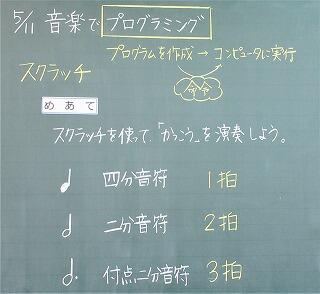 5/11 音楽でプログラミング
プログラムを作成→コンピュータに実行
命令
スクラッチ
めあて
スクラッチを使って、「かっこう」を演奏しよう。
四分音符 1拍
二分音符 2拍
付点二分音符 3拍